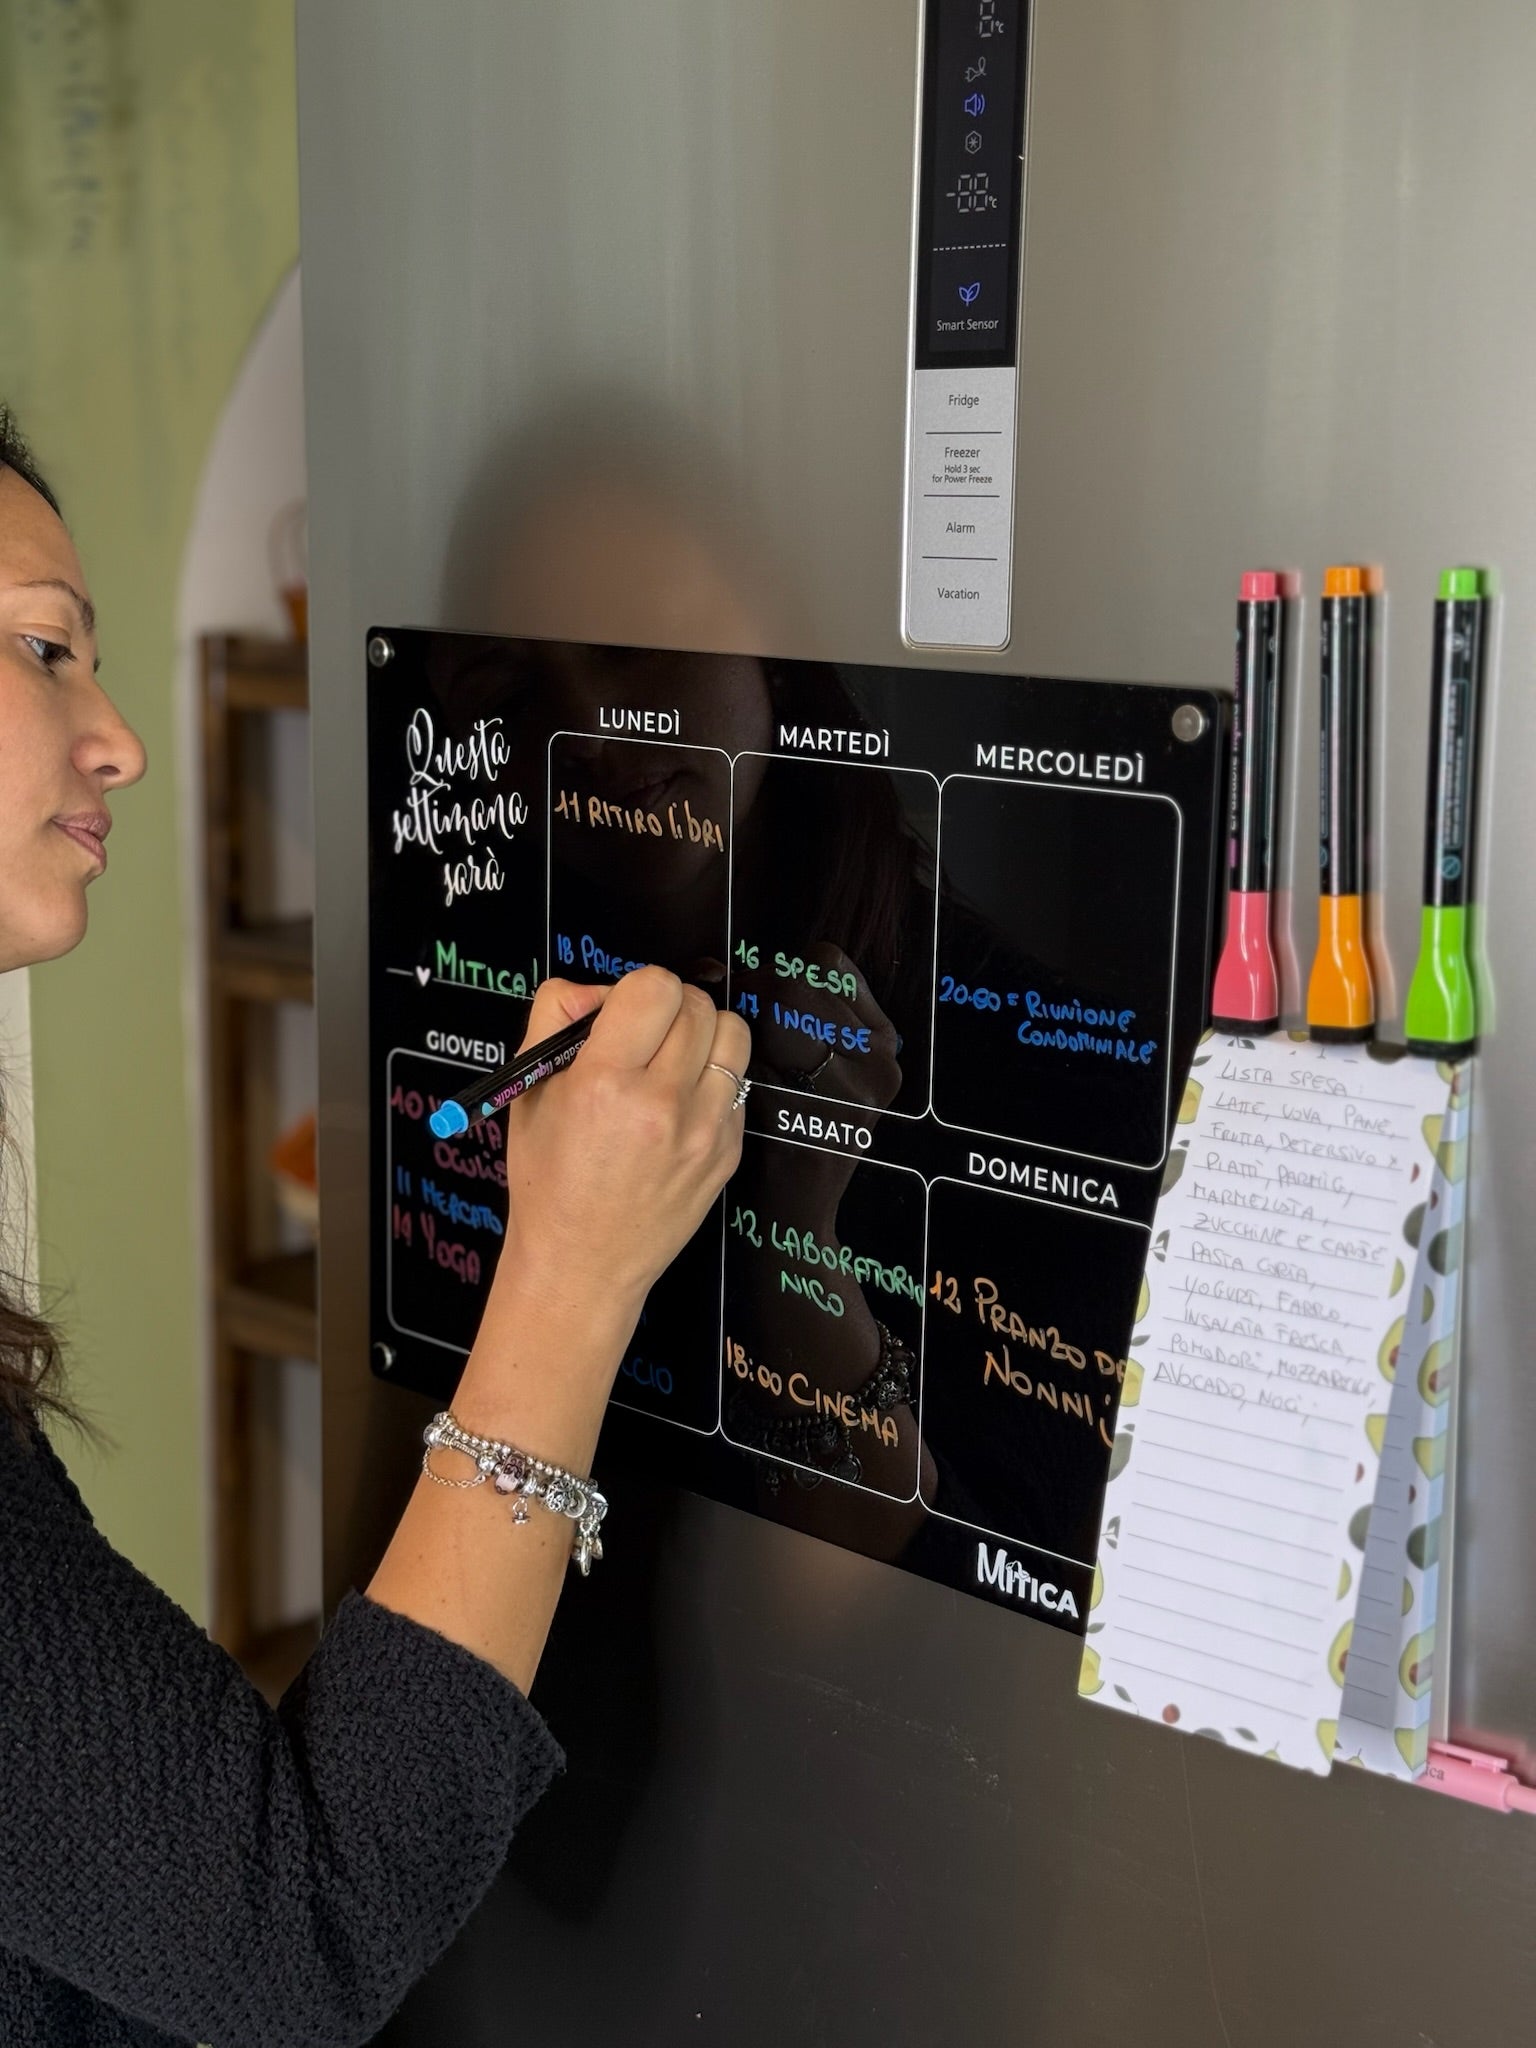 Smart Sensor
Fridge
Freezer
Hold 3 sec
for Power Freeze
Alarm
Vacation
Questa
settimana
sarà
MITICA!
LUNEDÌ
11 RITIRO libri
18
MARTEDÌ
16 SPESA
17 INGLESE
MERCOLEDÌ
RIUNIONE
CONDOMINIALE
GIOVEDÌ
10
11 MERCATO
YOGA
liquid chalk
SABATO
12 LABORATORIO
NICO
18:00 CINEMA
DOMENICA
12 PRANZO
NONNI
MITICA
LISTA SPESA:
LATTE, UOVA, PANE,
FRUTTA, DETERSIVO X
PIATTI, PARMIG,
MARMELLATA,
ZUCCHINE E CAROTE
PASTA CORTA,
YOGURT, FARRO,
INSALATA FRESCA,
POMODORI, MOZZARELLE,
AVOCADO, NOCI,